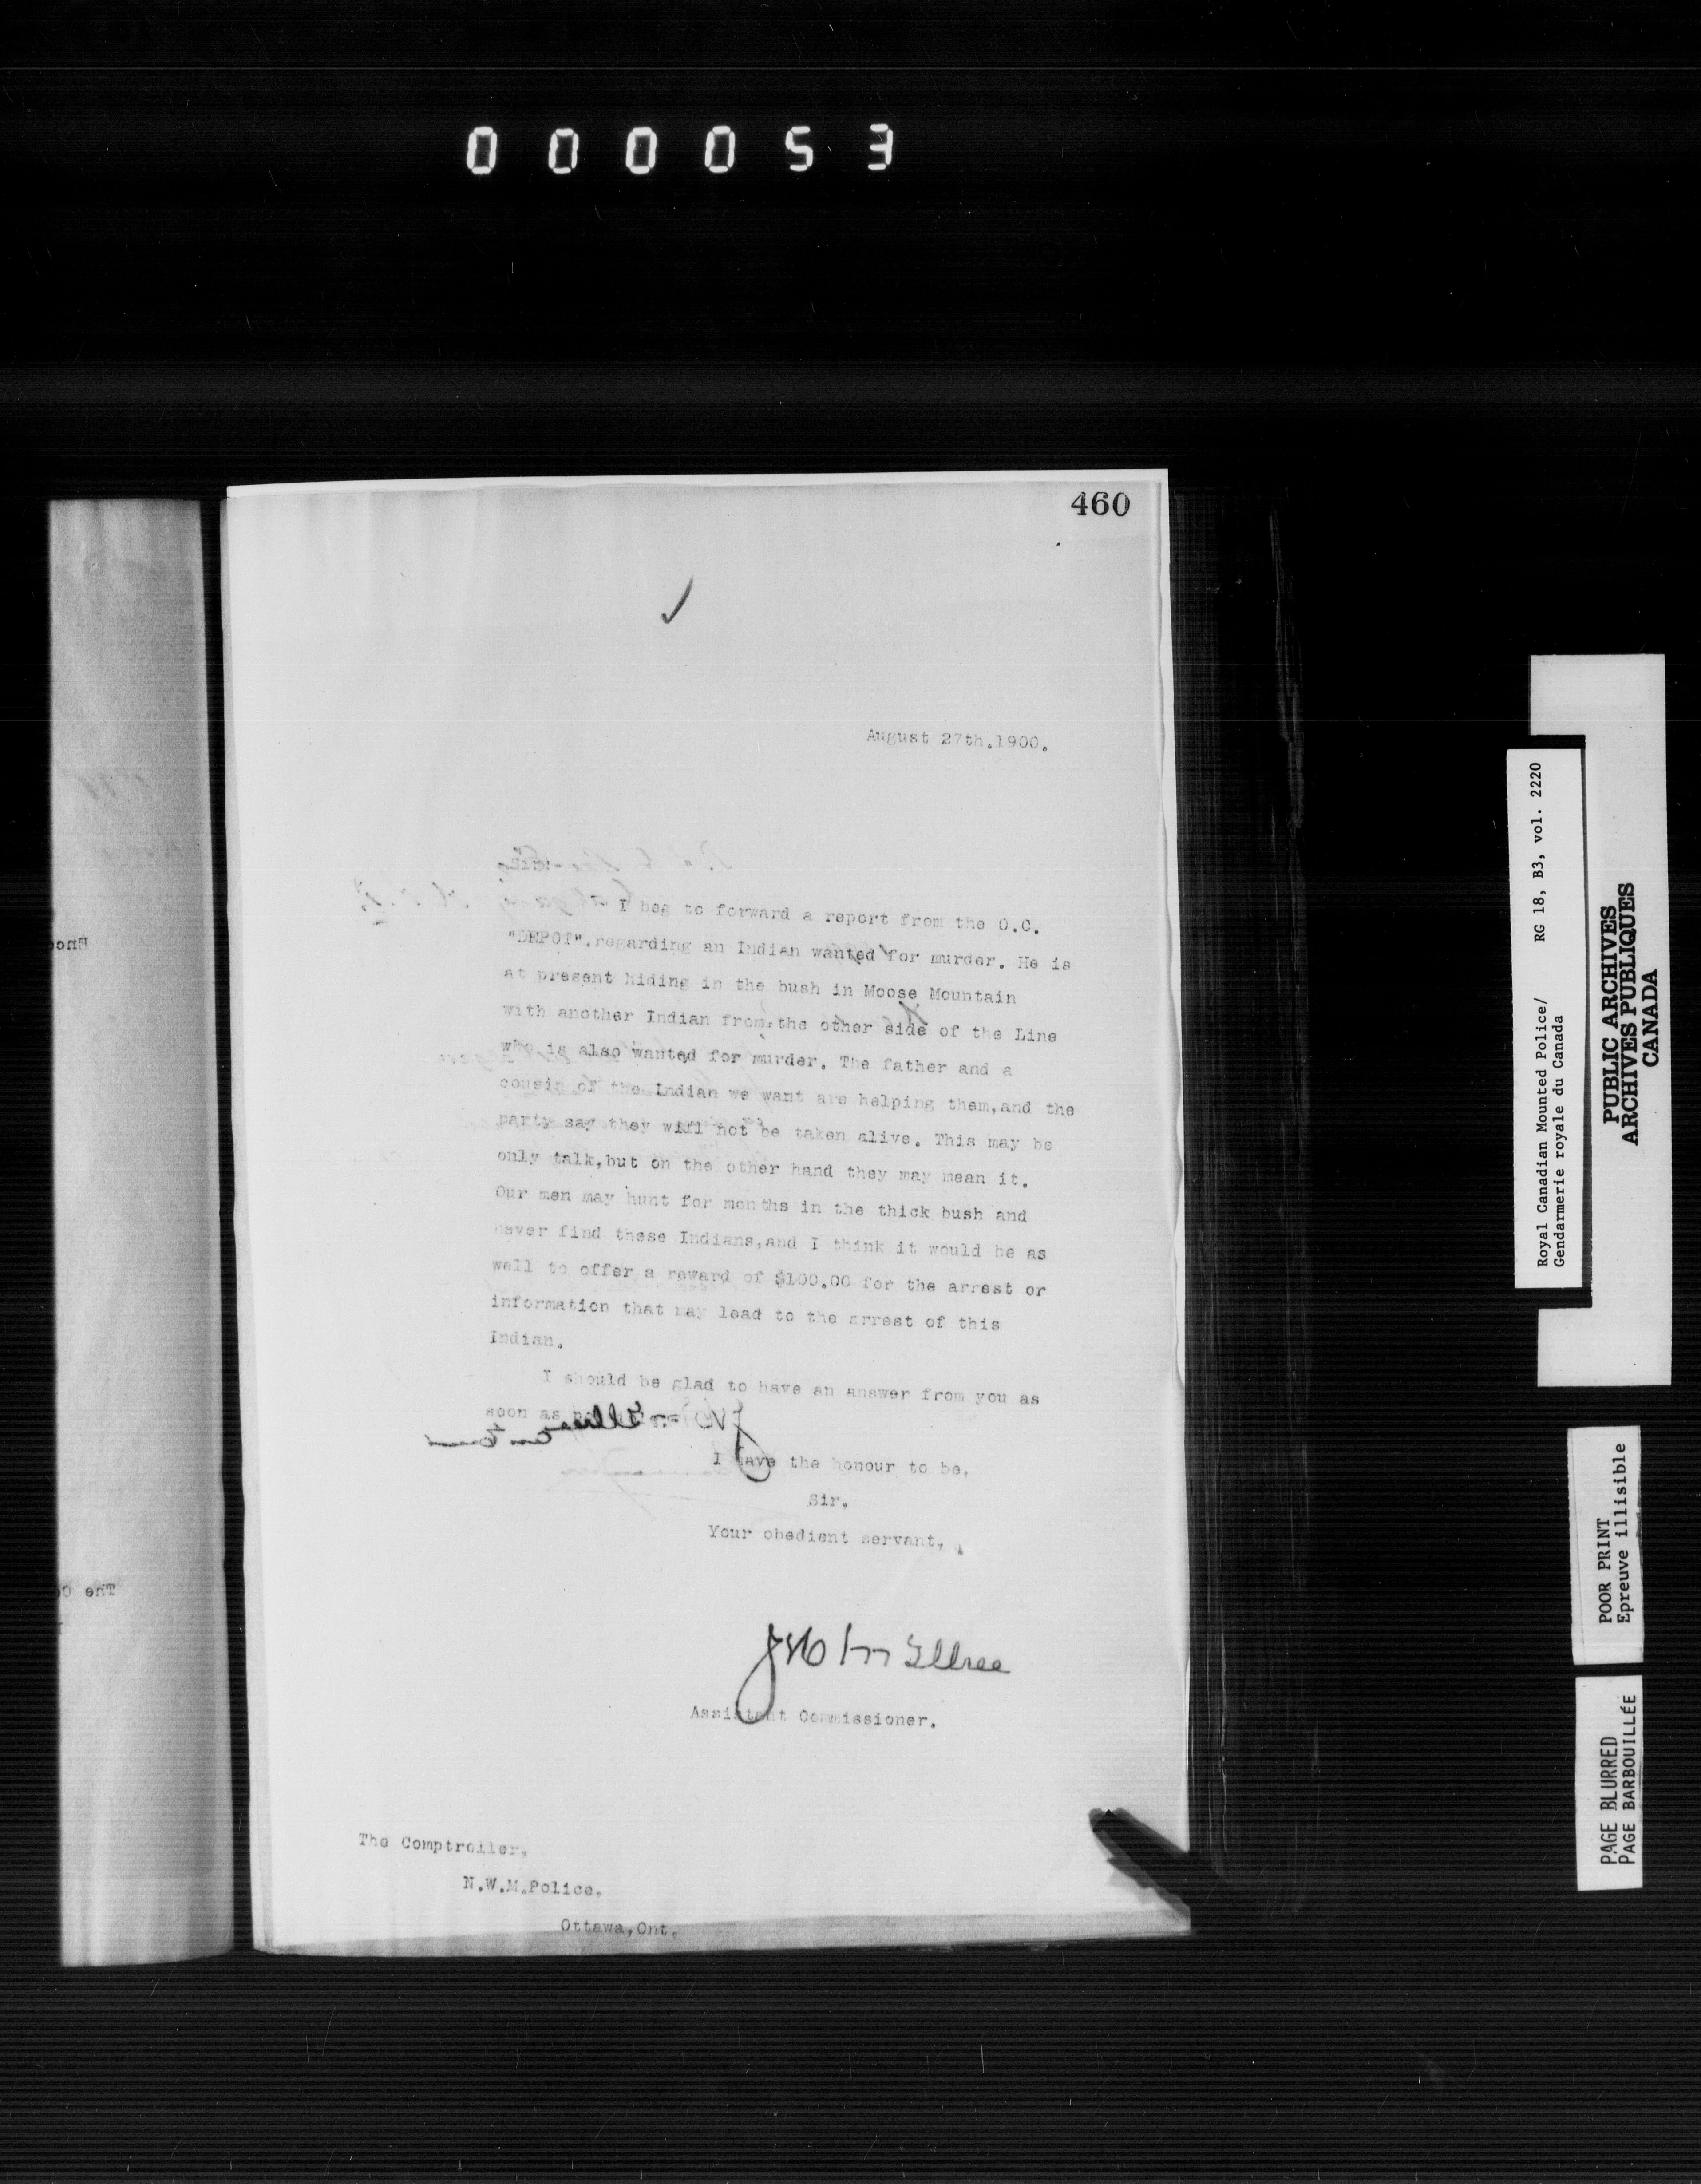 000053
460
August 27th.1900.
Sir,
I beg to forward a report from the O.C.
"DEPOT".regarding an Indian wanted for murder. He is
at present hiding in the bush in Moose Mountain
with another Indian from the other side of the Line
who is also wanted for murder. The father and a
cousin of the Indian we want are helping them,and the
party say they will not be taken alive. This may be
only talk,but on the other hand they may mean it.
Our men may hunt for months in the thick bush and
never find these Indians,and I think it would be as
well to offer a reward of $100.00 for the arrest or
information that may lead to the arrest of this
Indian.
I should be glad to have an answer from you as
soon as
I have the honour to be,
Sir.
Your obedient servant,
Assistant Commissioner.
The Comptroller,
N.W.M.Police,
Ottawa,Ont.
Royal Canadian Mounted Police/ RG 18, B3, vol. 2220
Gendarmerie royale du Canada
PUBLIC ARCHIVES
ARCHIVES PUBLIQUES
CANADA
POOR PRINT
Epreuve illisible
PAGE BLURRED
PAGE BARBOUILLÉE